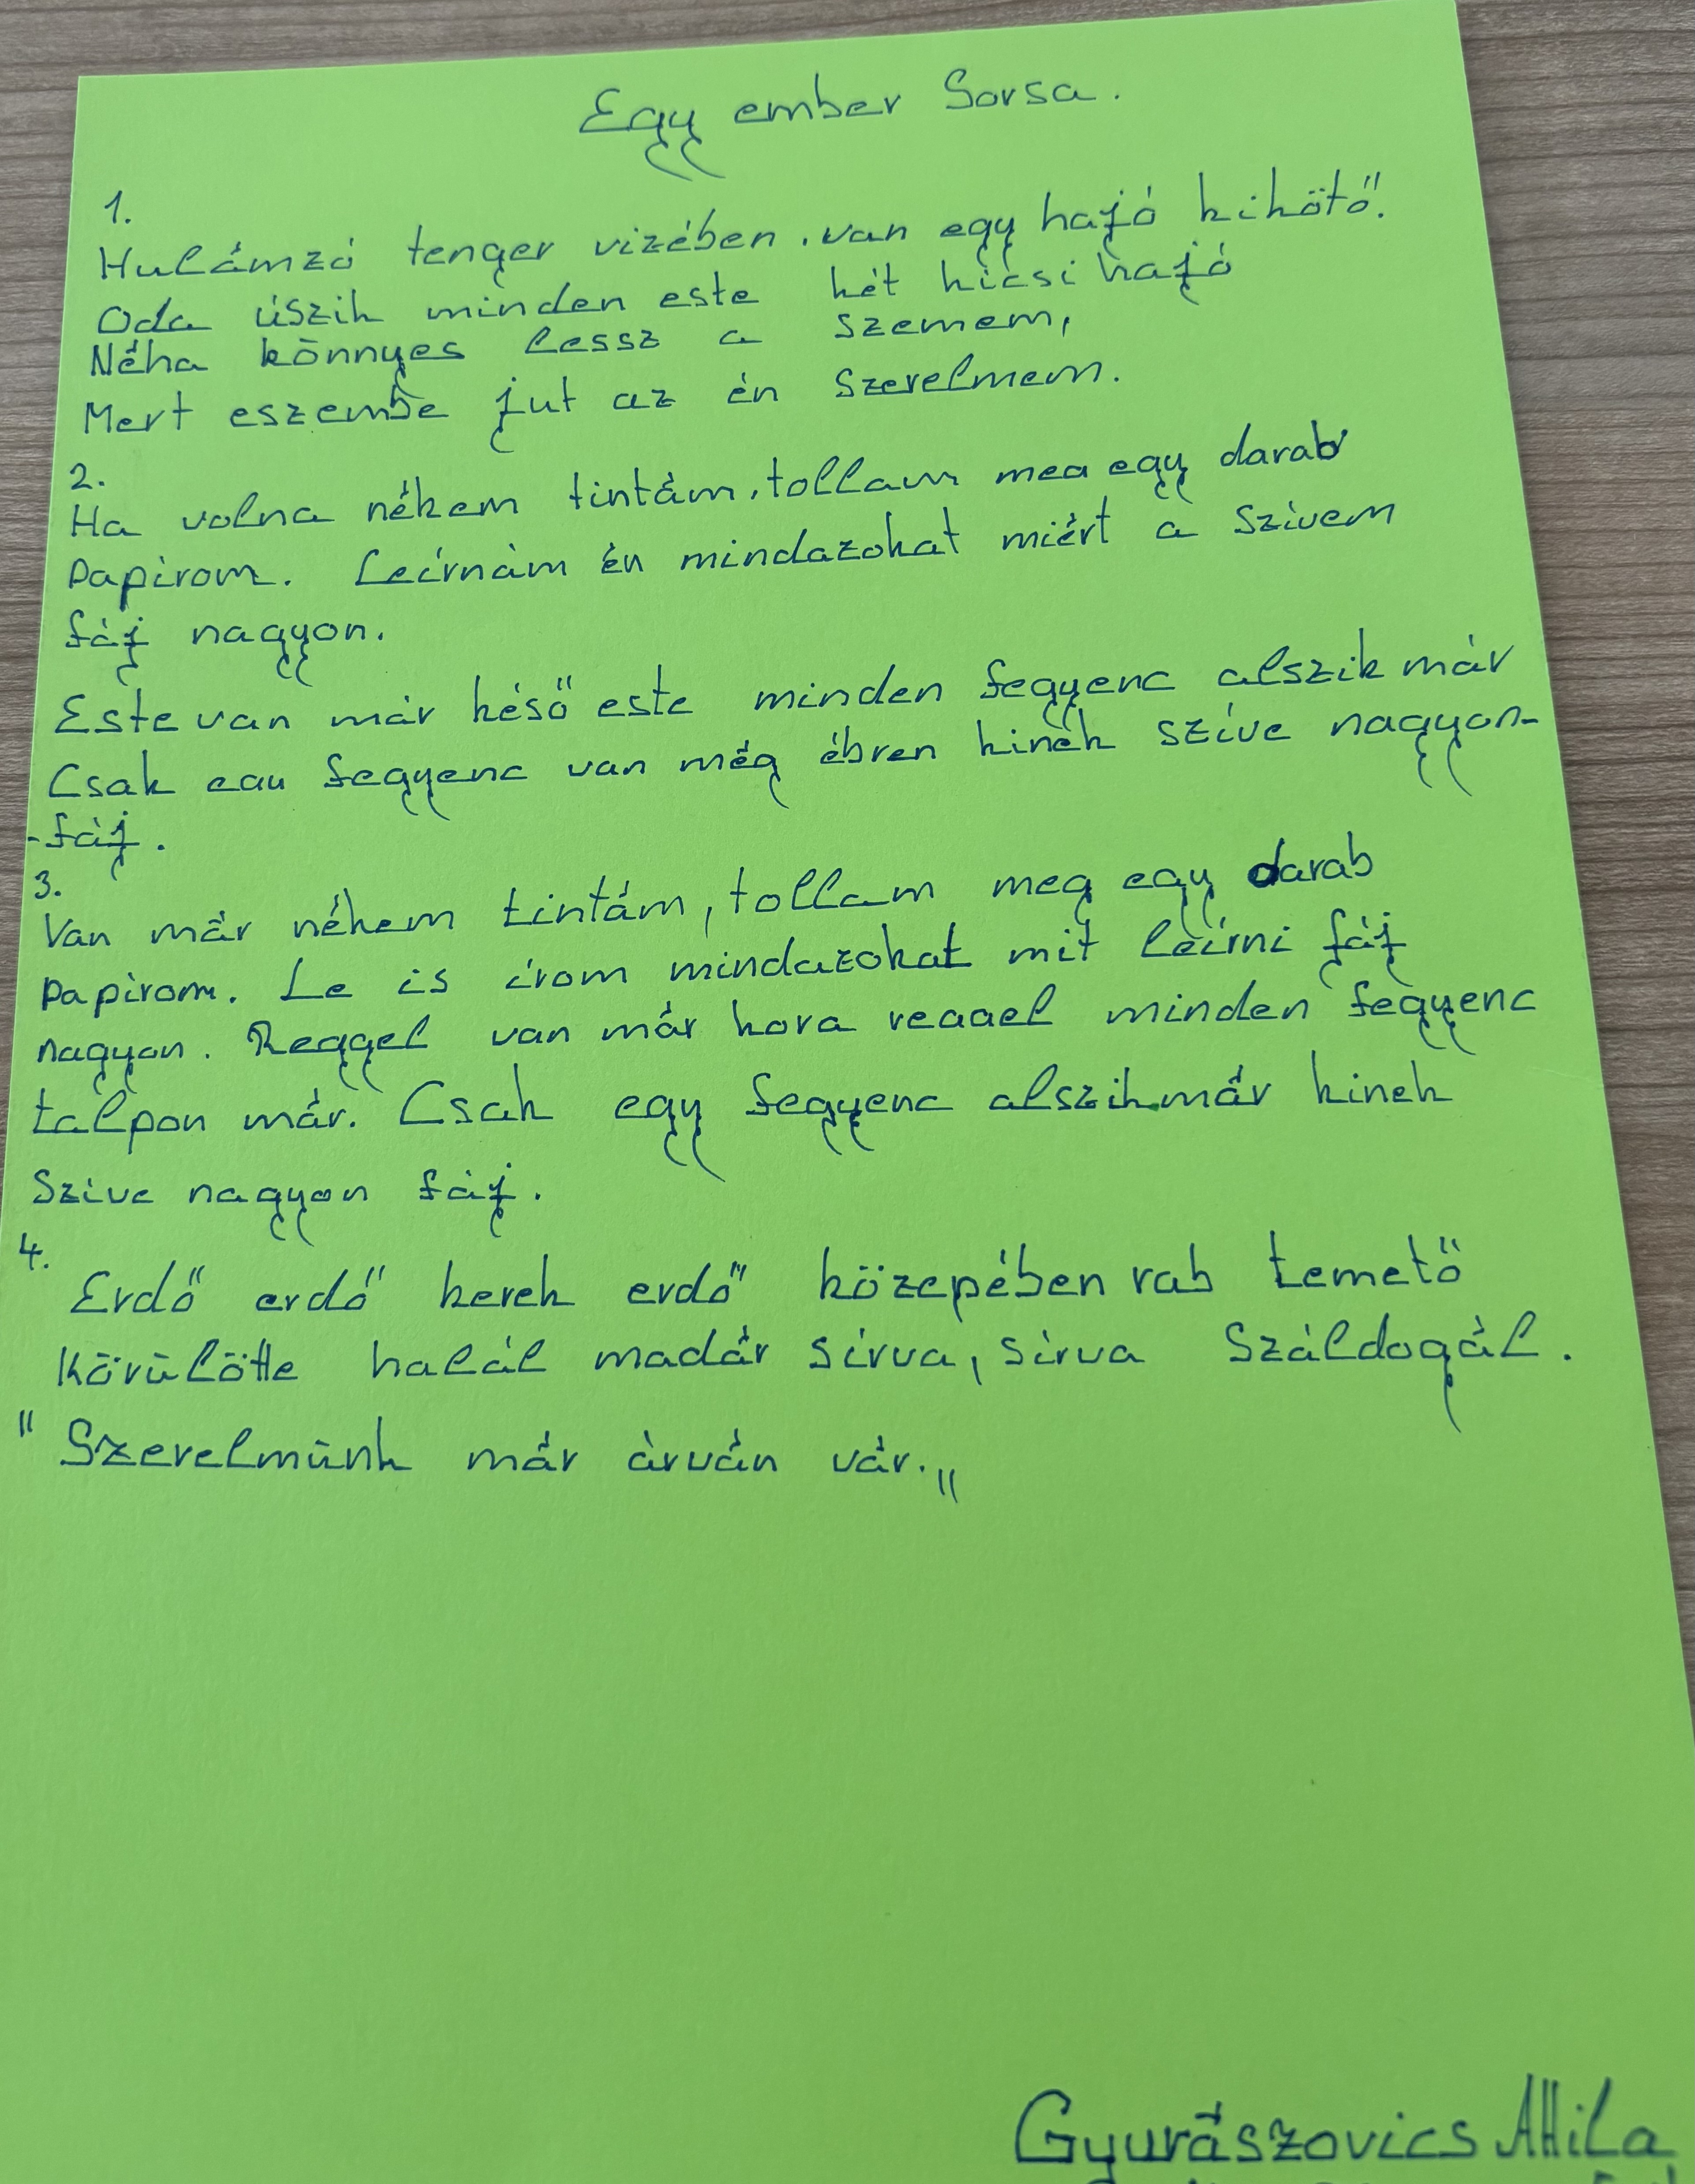 Egy ember Sorsa.
1.
Hulámzó tenger vizében. van egy hajó kikötő.
Oda úszik minden este két kicsi hajó
Néha könnyes lessz a szemem,
Mert eszembe jut az én Szerelmem.
2.
Ha volna nékem tintám, tollam meg egy darab
Papirom. Leírnám én mindazokat miért a Szivem
fáj nagyon.
Este van már késő este minden fegyenc alszik már
Csak egy fegyenc van még ébren kinek szíve nagyon-
-fáj.
3.
Van már nékem tintám, tollam meg egy darab
papirom. Le is írom mindazokat mit leírni fáj
nagyon. Reggel van már kora reggel minden fegyenc
talpon már. Csak egy fegyenc alszik már kinek
Szíve nagyon fáj.
4.
Erdő erdő kerek erdő közepében rab temető
Körülötte halál madár sírva, sírva Száldogál.
"Szerelmünk már árván vár."
Gyurászovics Attila